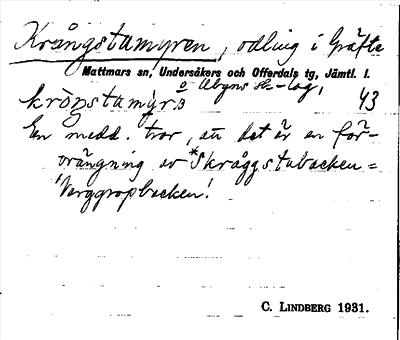 Krångstamyren, odling i Gräfte
Mattmars sn, Undersåkers och Offerdals tg, Jämtl. l.
o Abyns sk-lag,
kròŋstamy̆rɔ 43
En medd. tror, att det är en för-
vrängning av *Skråggstabacken =
'Varggropbacken'.
C. LINDBERG 1931.